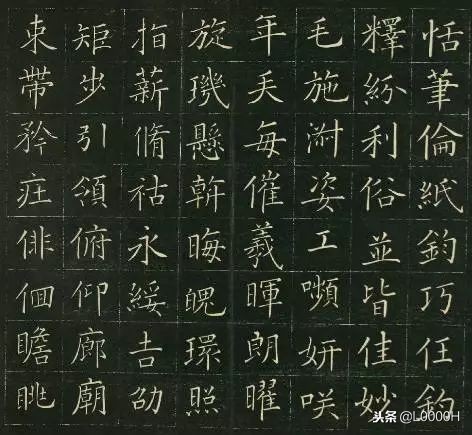 恬筆倫紙鈞巧任釣
釋紛利俗並皆佳妙
毛施淑姿工嚬妍咲
年矢每催羲暉朗曜
旋璣懸斡晦魄環照
指薪脩祜永綏吉劭
矩步引領俯仰廊廟
束帶矜庄俳佪瞻眺
头条 @L0000H